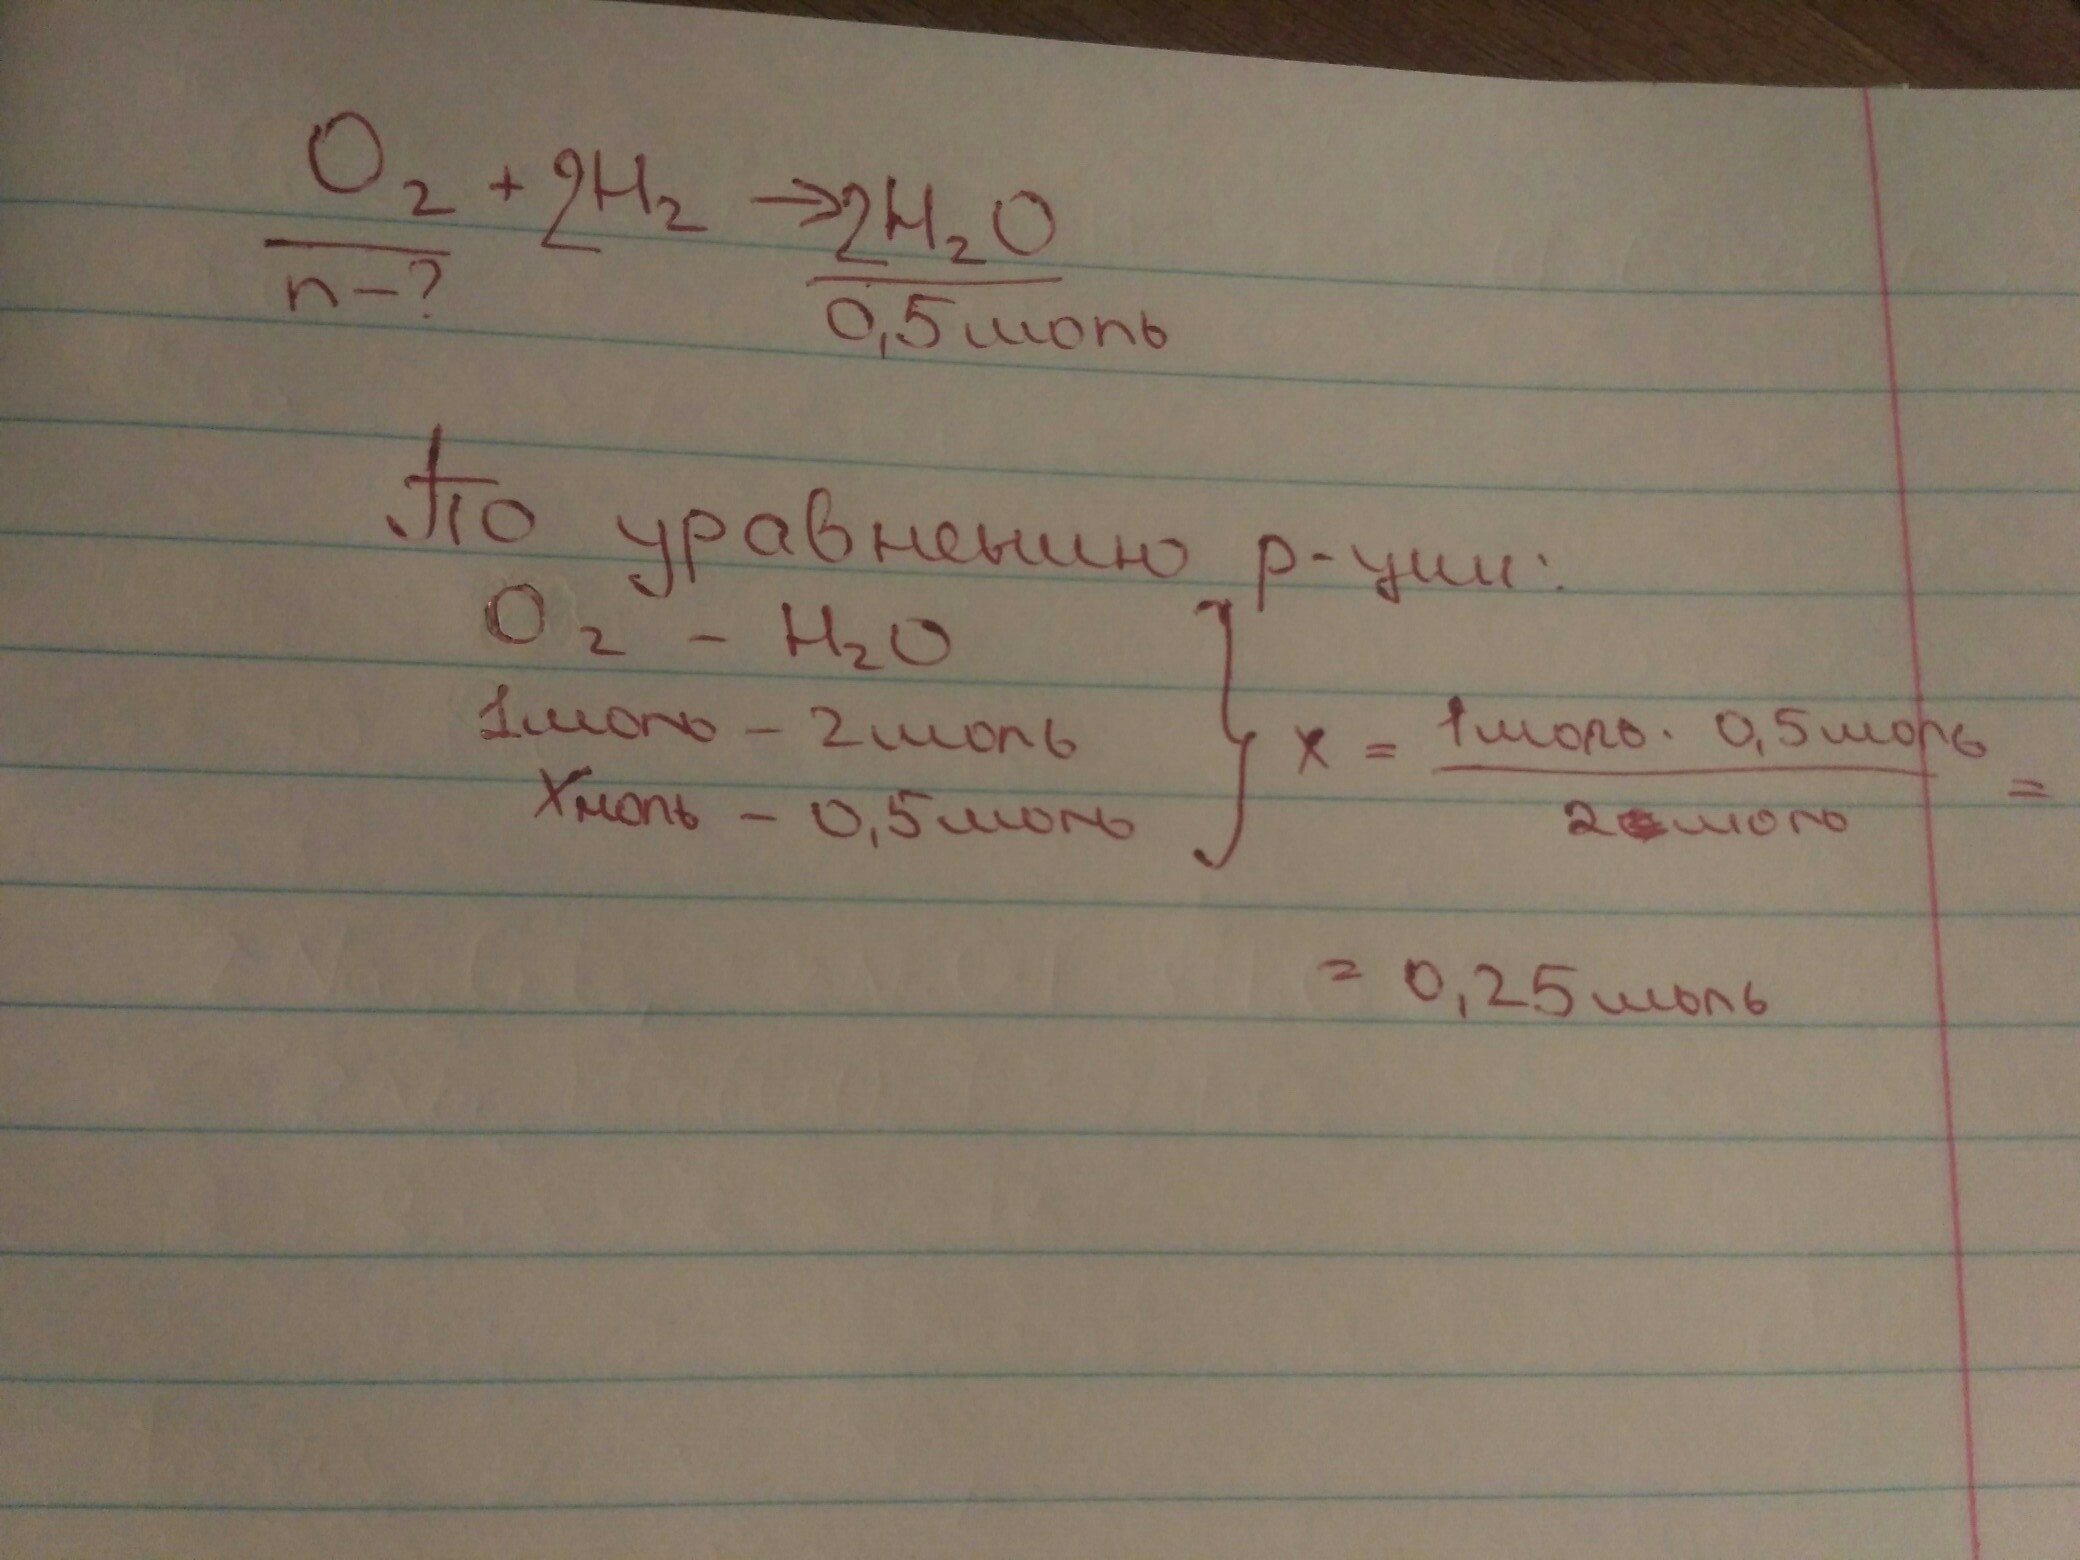 O₂ + 2H₂ → 2H₂O
n-? 0,5 моль
По уравнению р-ции:
O₂ - H₂O
1 моль - 2 моль
X моль - 0,5 моль } x = (1 моль · 0,5 моль) / 2 моль =
= 0,25 моль